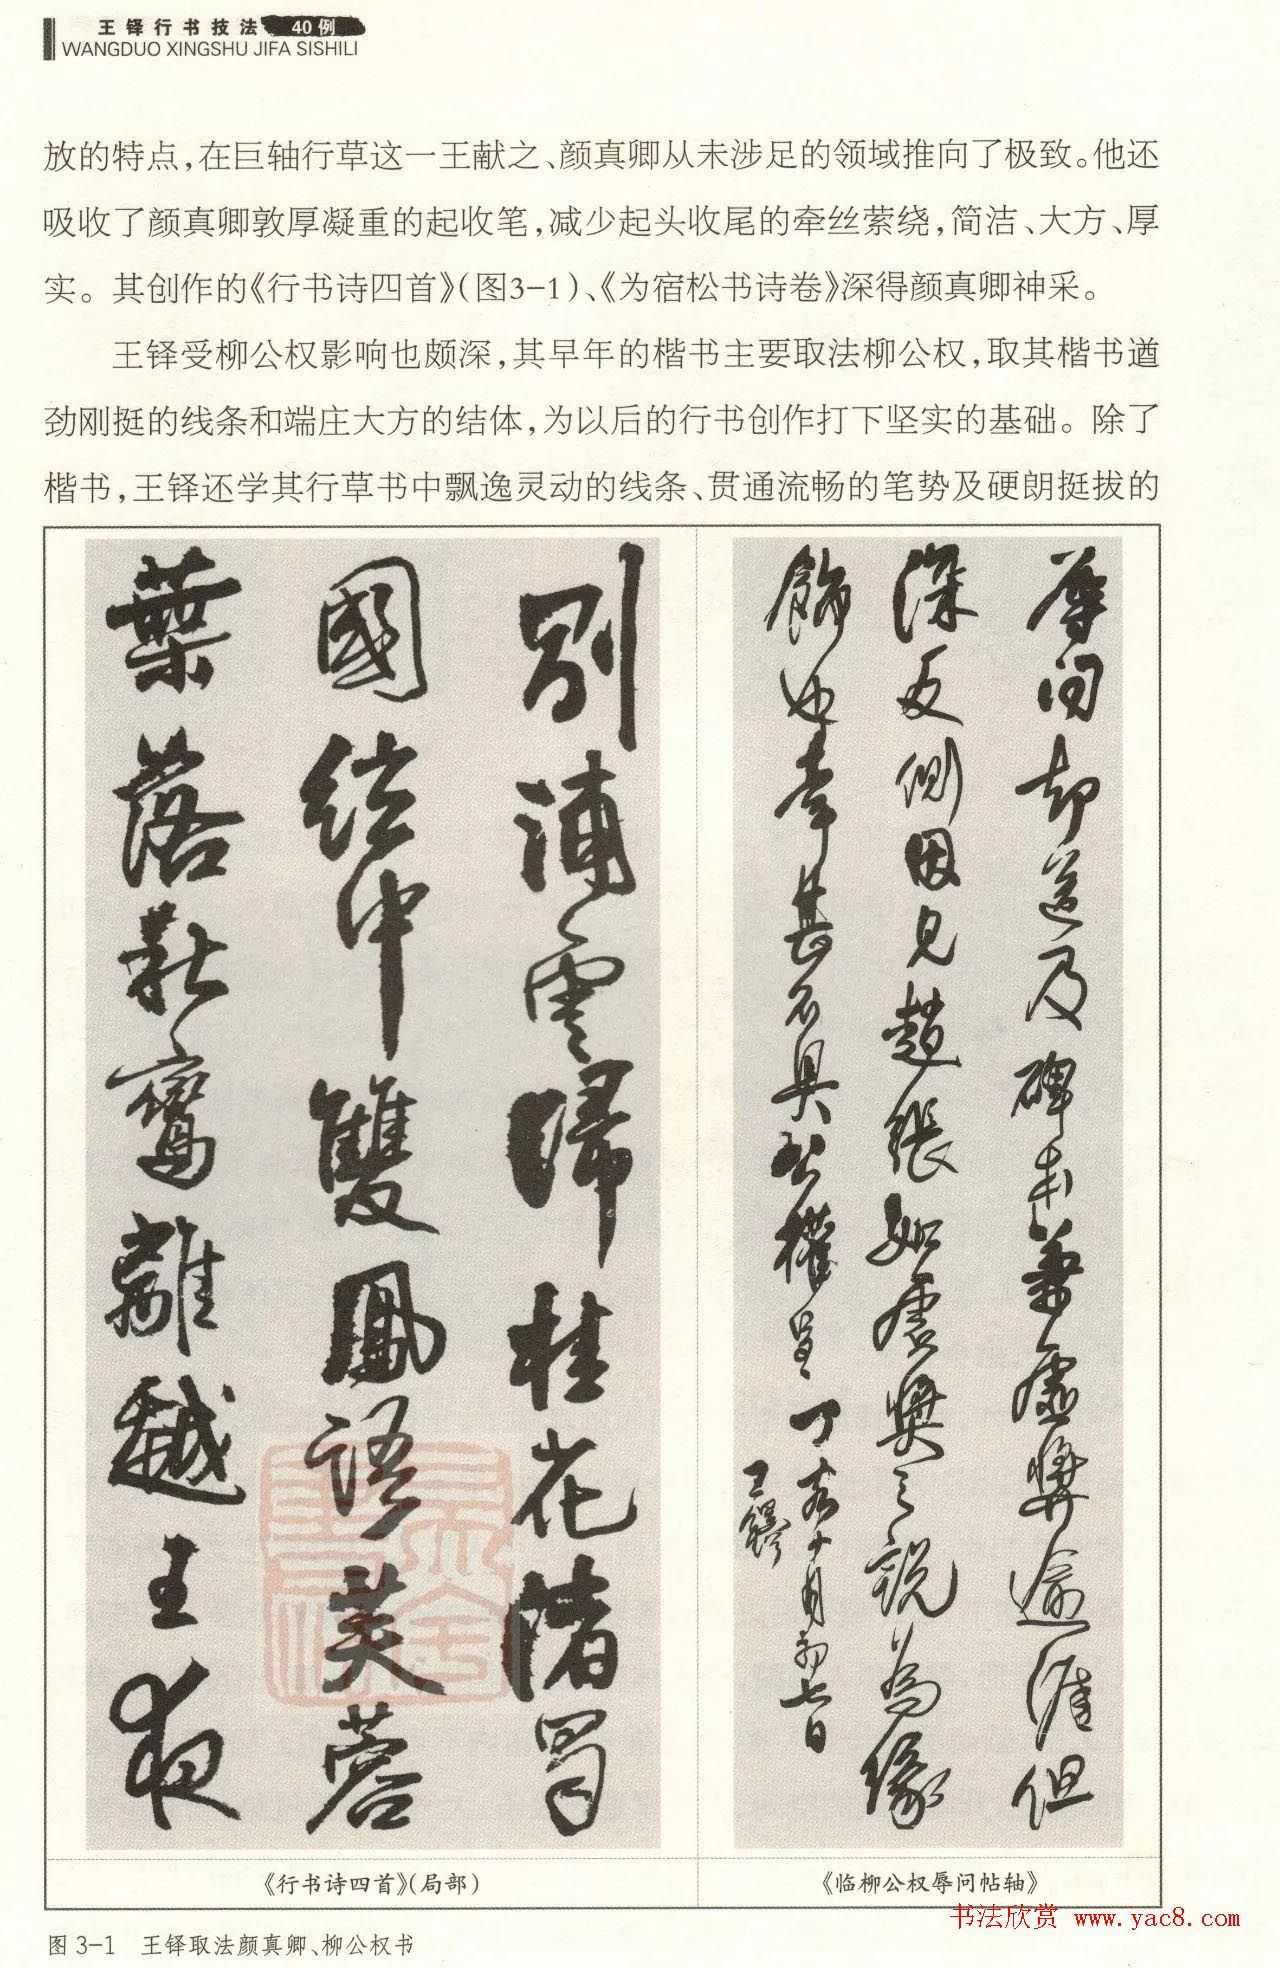 王铎行书技法 40例
WANGDUO XINGSHU JIFA SISHILI
放的特点,在巨轴行草这一王献之、颜真卿从未涉足的领域推向了极致。他还
吸收了颜真卿敦厚凝重的起收笔,减少起头收尾的牵丝萦绕,简洁、大方、厚
实。其创作的《行书诗四首》(图3-1)、《为宿松书诗卷》深得颜真卿神采。
王铎受柳公权影响也颇深,其早年的楷书主要取法柳公权,取其楷书遒
劲刚挺的线条和端庄大方的结体,为以后的行书创作打下坚实的基础。除了
楷书,王铎还学其行草书中飘逸灵动的线条、贯通流畅的笔势及硬朗挺拔的
別浦雲歸桂花渚蜀
國絃中雙鳳語芙蓉
葉落秋鸞離越王夜
辱问却送及碑本兼虚奬逾涯但
深反側因見趙張如虚奬之説為緣
飾也幸甚不具公權呈 丁亥十月初七日
王鐸
《行书诗四首》(局部)
《临柳公权辱问帖轴》
图 3-1 王铎取法颜真卿、柳公权书
书法欣赏 www.yac8.com